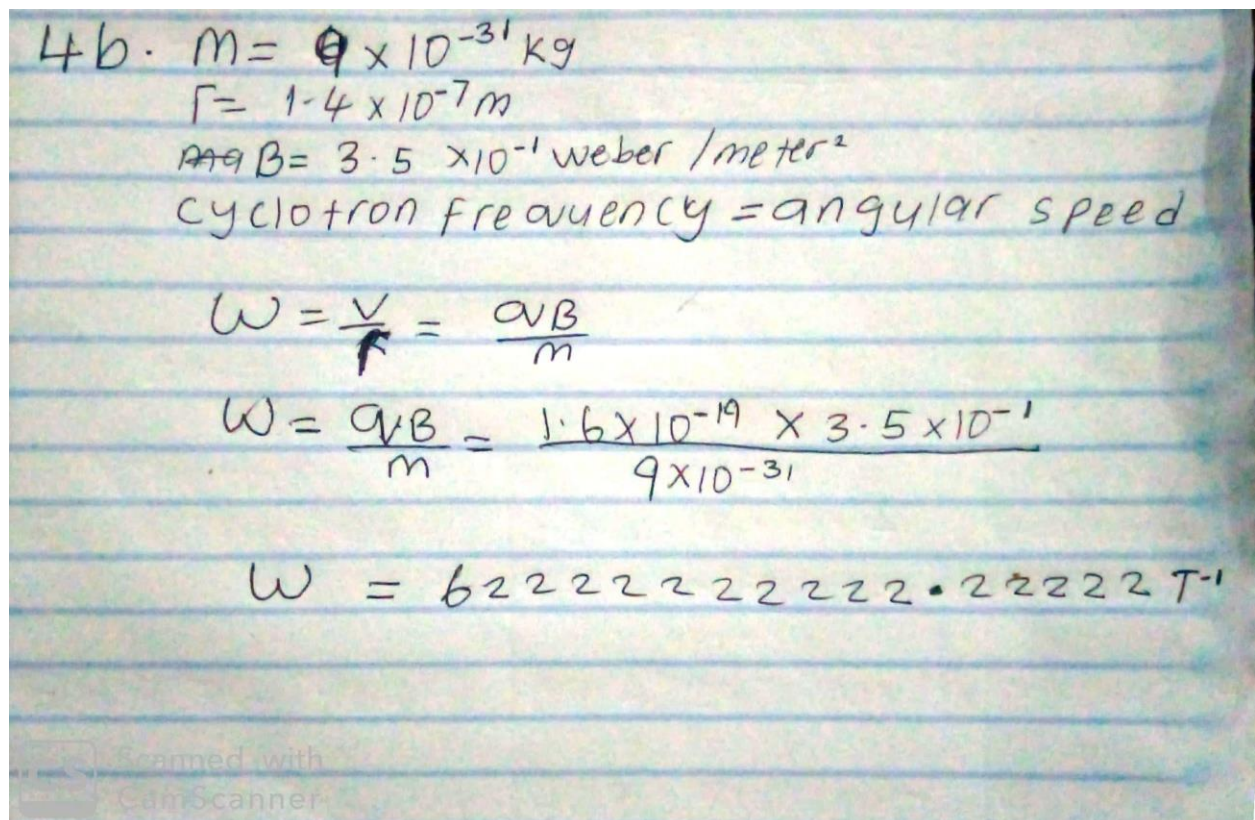 4b. m = 9 x 10⁻³¹ kg
r = 1.4 x 10⁻⁷ m
B = 3.5 x10⁻¹ weber / meter²
cyclotron frequency = angular speed
W = v/r = qB/m
W = qB/m = 1.6 x 10⁻¹⁹ x 3.5 x 10⁻¹ / 9 x 10⁻³¹
W = 62222222222.22222 T⁻¹
Scanned with
CamScanner